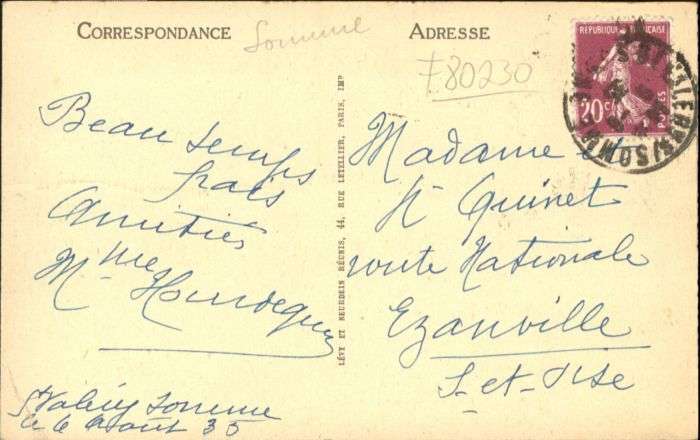 CORRESPONDANCE
Somme
ADRESSE
F80230
REPUBLIQUE FRANÇAISE
20c
POSTES
SOMME
Beau temps
frais
Amitiés
Mme
St Valéry Somme
le 6 Août 35
LÉVY ET NEURDEIN RÉUNIS, 44, RUE LETELLIER, PARIS, IMP
Madame et
Mr Quinet
route Nationale
Ezanville
S-et-Oise